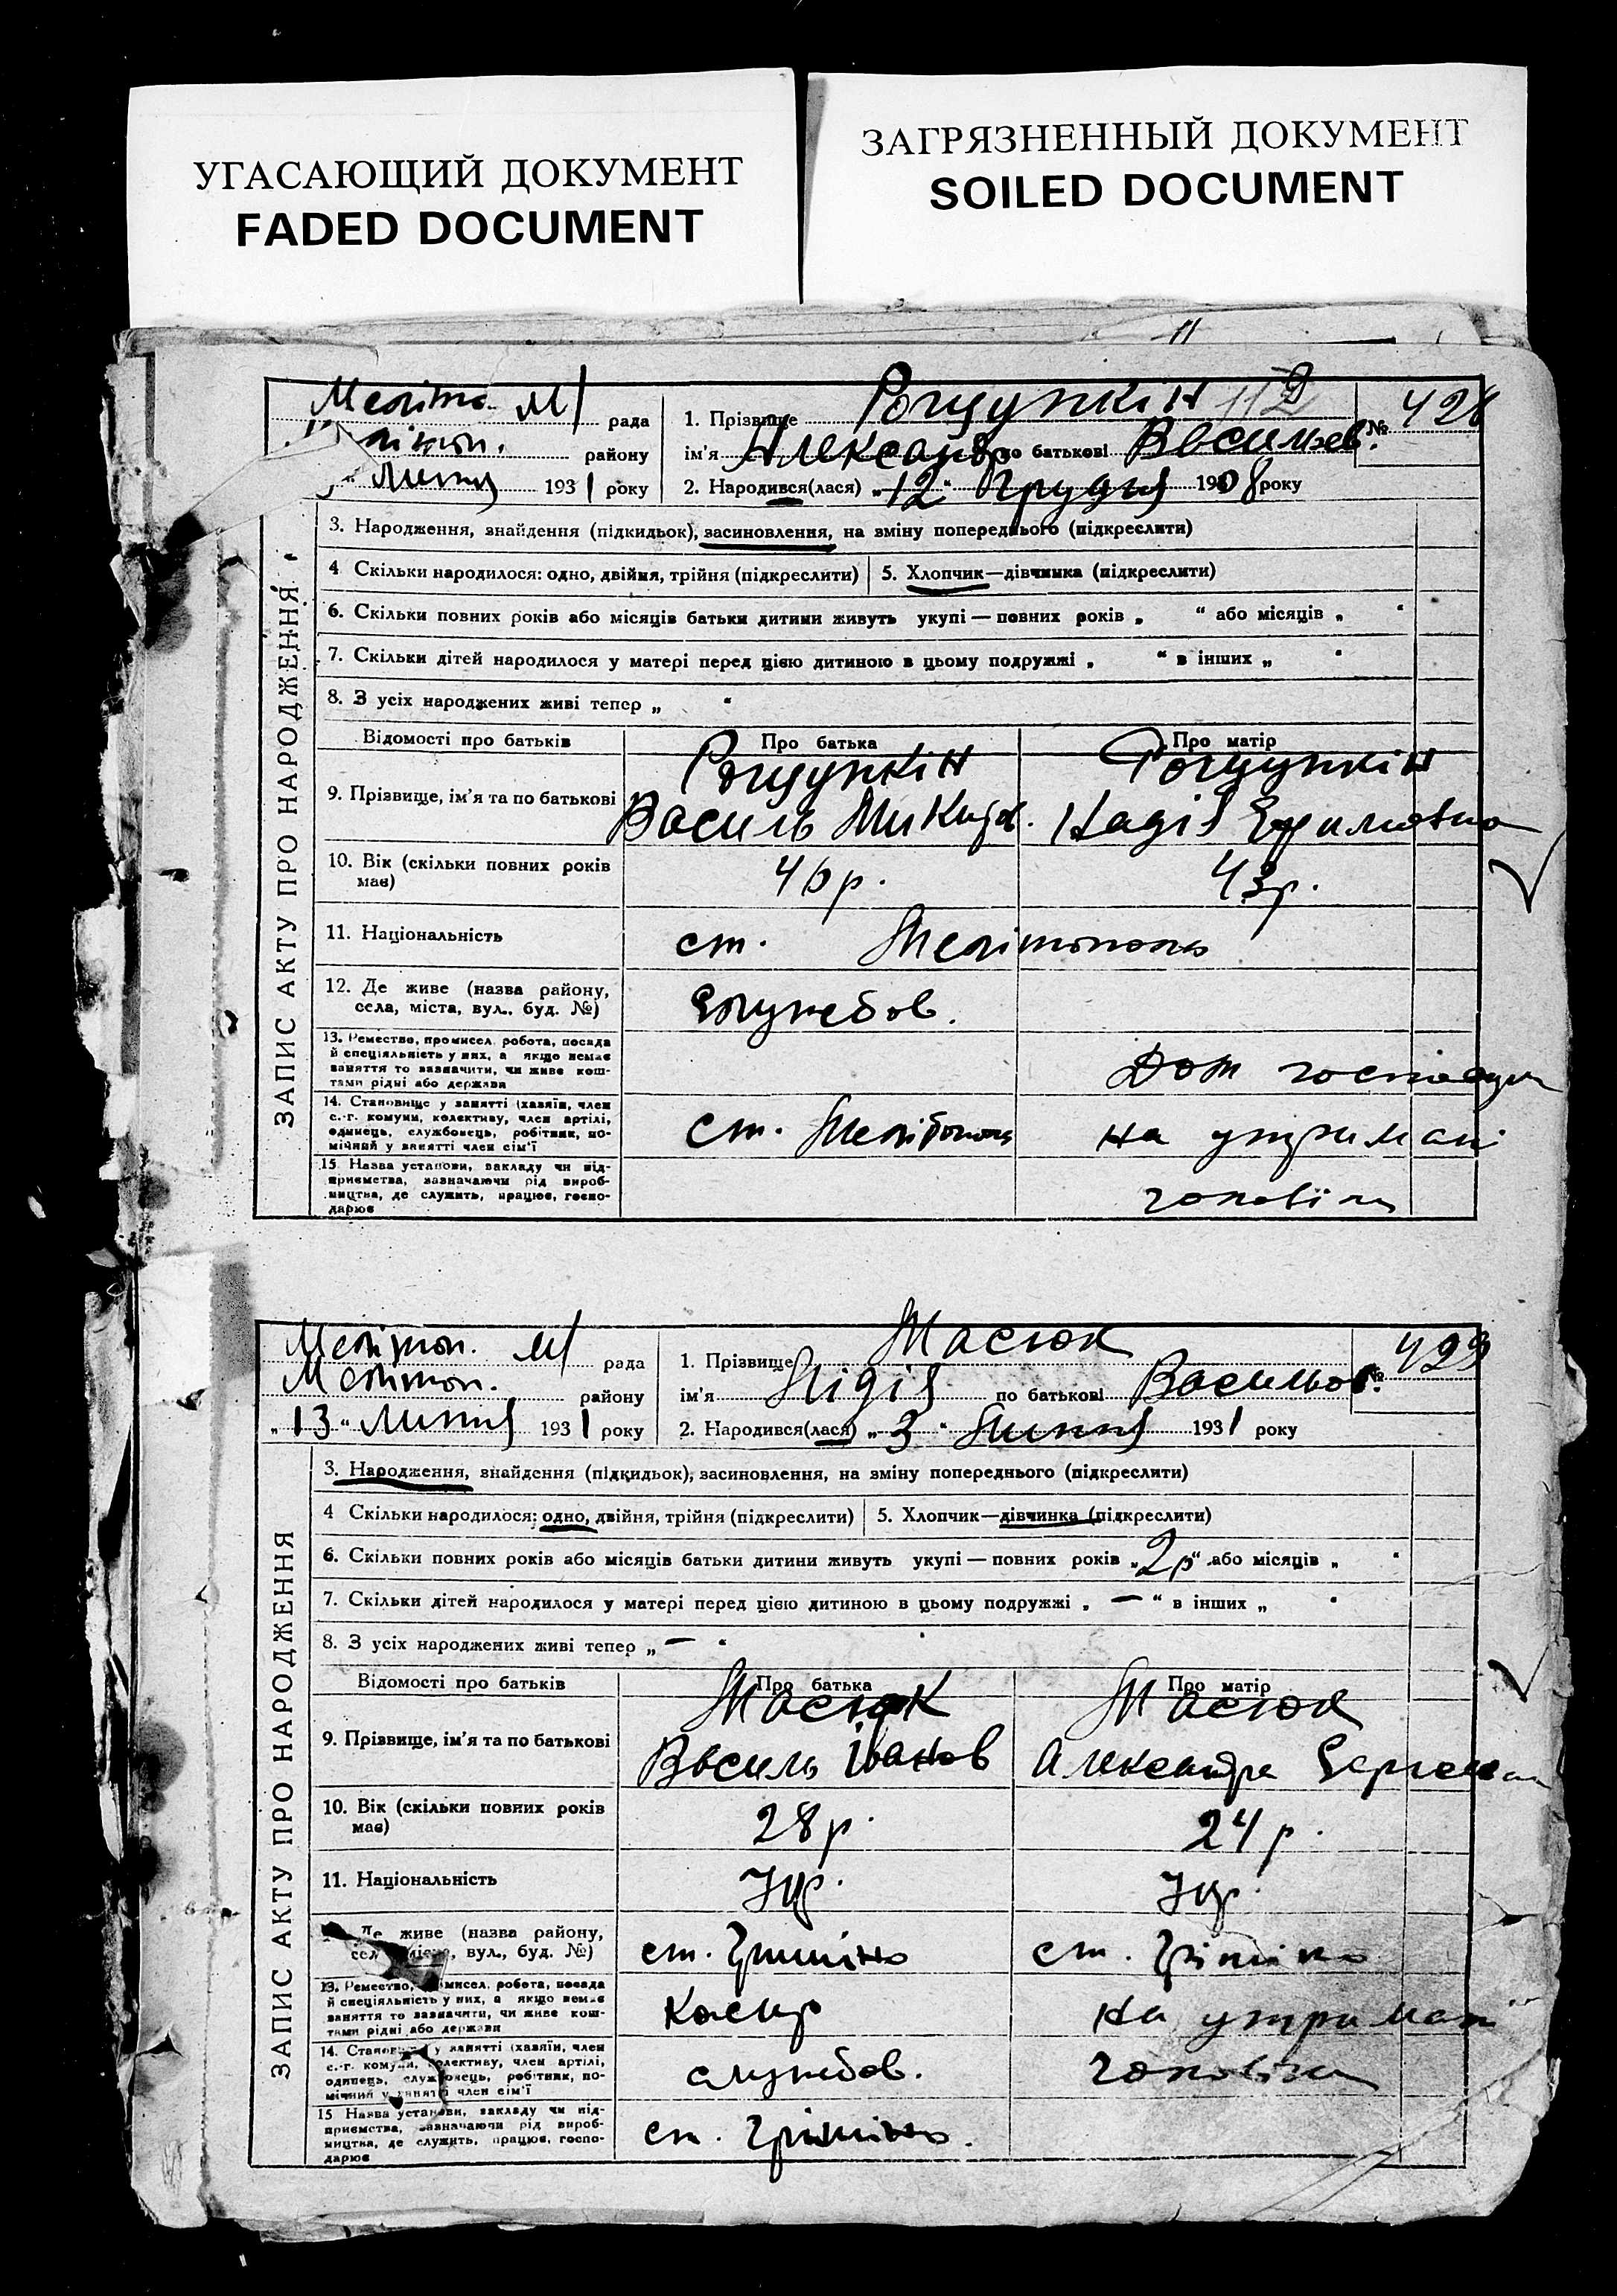 УГАСАЮЩИЙ ДОКУМЕНТ
FADED DOCUMENT
ЗАГРЯЗНЕННЫЙ ДОКУМЕНТ
SOILED DOCUMENT
ЗАПИС АКТУ ПРО НАРОДЖЕННЯ
рада
району
Липня 1931 року
1. Прізвище Рощупкін 112
№ 428
ім'я Александр по батькові Васильев.
2. Народився(лася) „12" Грудня 1908 року
3. Народження, знайдення (підкидьок), засиновлення, на зміну попереднього (підкреслити)
4 Скільки народилося: одно, двійня, трійня (підкреслити)
5. Хлопчик—дівчинка (підкреслити)
6. Скільки повних років або місяців батьки дитини живуть укупі — повних років „ " або місяців „ "
7. Скільки дітей народилося у матері перед цією дитиною в цьому подружжі „ " в інших „ "
8. З усіх народжених живі тепер „ "
Відомості про батьків
Про батька
Про матір
9. Прізвище, ім'я та по батькові
Рощупкін
Василь Микит.
Рощупкін
Надія
10. Вік (скільки повних років має)
43р.
11. Національність
ст. Мелітополь
12. Де живе (назва району,
села, міста, вул., буд. №)
13. Ремество, промисел, робота, посада
й спеціяльність у них, а якщо немає
заняття то зазначити, чи живе кош-
тами рідні або держави
Дом господар
14. Становище у занятті (хазяїн, член
с.-г. комуни, колективу, член артілі,
одинець, службовець, робітник, по-
мічний у занятті член сім'ї
ст. Мелітополь
на утримані
15. Назва установи, закладу чи під-
приємства, зазначаючи рід вироб-
ництва, де служить, працює, госпо-
дарює
чоловіка
ЗАПИС АКТУ ПРО НАРОДЖЕННЯ
Мелітоп. М/ рада
Мелітоп. району
„13" Липня 1931 року
1. Прізвище Масюк
№ 429
ім'я Лідія по батькові Васильов.
2. Народився(лася) „3" Липня 1931 року
3. Народження, знайдення (підкидьок), засиновлення, на зміну попереднього (підкреслити)
4 Скільки народилося: одно, двійня, трійня (підкреслити)
5. Хлопчик—дівчинка (підкреслити)
6. Скільки повних років або місяців батьки дитини живуть укупі — повних років „2р" або місяців „ "
7. Скільки дітей народилося у матері перед цією дитиною в цьому подружжі „ — " в інших „ "
8. З усіх народжених живі тепер „ — "
Відомості про батьків
Про батька
Про матір
9. Прізвище, ім'я та по батькові
Масюк
Василь Іванов
Масюк
Александра
10. Вік (скільки повних років має)
28р.
24р.
11. Національність
Укр.
Укр.
живе (назва району,
вул., буд. №)
ст. Гришіно
ст. Грішіно
13. Ремество, промисел, робота, посада
й спеціяльність у них, а якщо немає
заняття то зазначити, чи живе кош-
тами рідні або держави
Касир
на утримані
14. Становище у занятті (хазяїн, член
с.-г. комуни, колективу, член артілі,
одинець, службовець, робітник, по-
мічний у занятті член сім'ї
службов.
чоловіка
15 Назва установи, закладу чи під-
приємства, зазначаючи рід вироб-
ництва, де служить, працює, госпо-
дарює
ст. Грішіно.